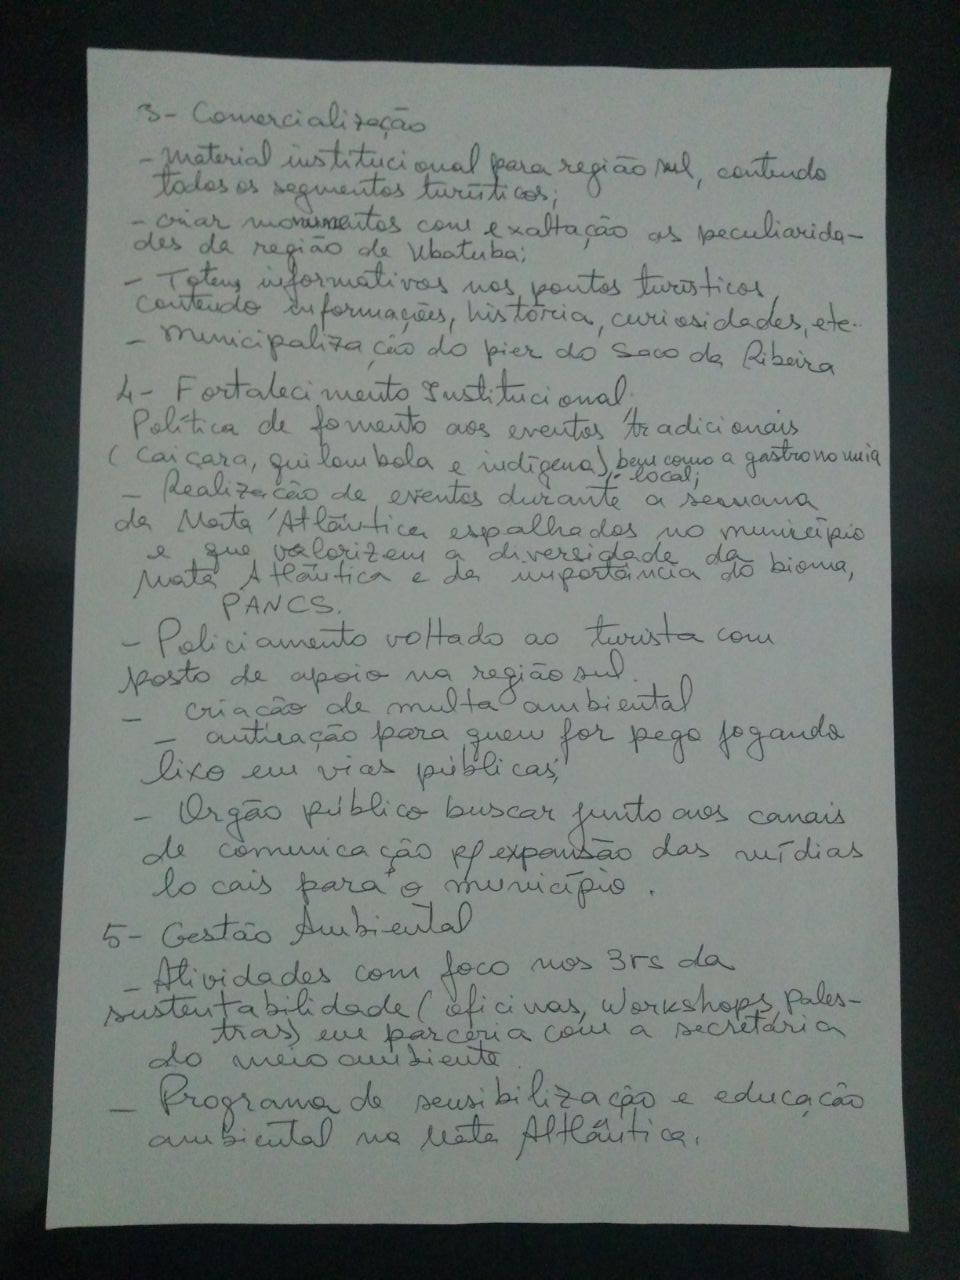 3- Comercialização
- Material institucional para região sul, contendo
todos os segmentos turísticos;
- criar monumentos com exaltação as peculiarida-
des da região de Ubatuba;
- Totens informativos nos pontos turísticos,
contendo informações, história, curiosidades, etc..
- Municipalização do pier do Saco da Ribeira
4- Fortalecimento Institucional.
Política de fomento aos eventos tradicionais
(Caiçara, quilombola e indígena), bem como a gastronomia
local;
- Realização de eventos durante a semana
da Mata Atlântica espalhados no município
e que valorizem a diversidade da
Mata Atlântica e da importância do bioma,
PANCS.
- Policiamento voltado ao turista com
posto de apoio na região sul.
- criação de multa ambiental
- autuação para quem for pego jogando
lixo em vias públicas;
- Orgão público buscar junto aos canais
de comunicação p/ expansão das mídias
locais para o município.
5- Gestão Ambiental
- Atividades com foco nos 3rs da
sustentabilidade (oficinas, workshops, pales-
tras) em parceria com a secretária
do meio ambiente.
- Programa de sensibilização e educação
ambiental na Mata Altlântica.